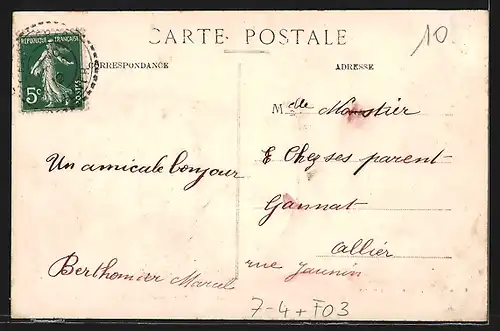 10
CARTE POSTALE
RÉPUBLIQUE FRANÇAISE
5c
POSTES
CORRESPONDANCE
ADRESSE
Mdlle Monstier
Chez ses parent
Un amicale bonjour
Gannat
Allier
Berthomier Marcel
rue
7-4 + F03